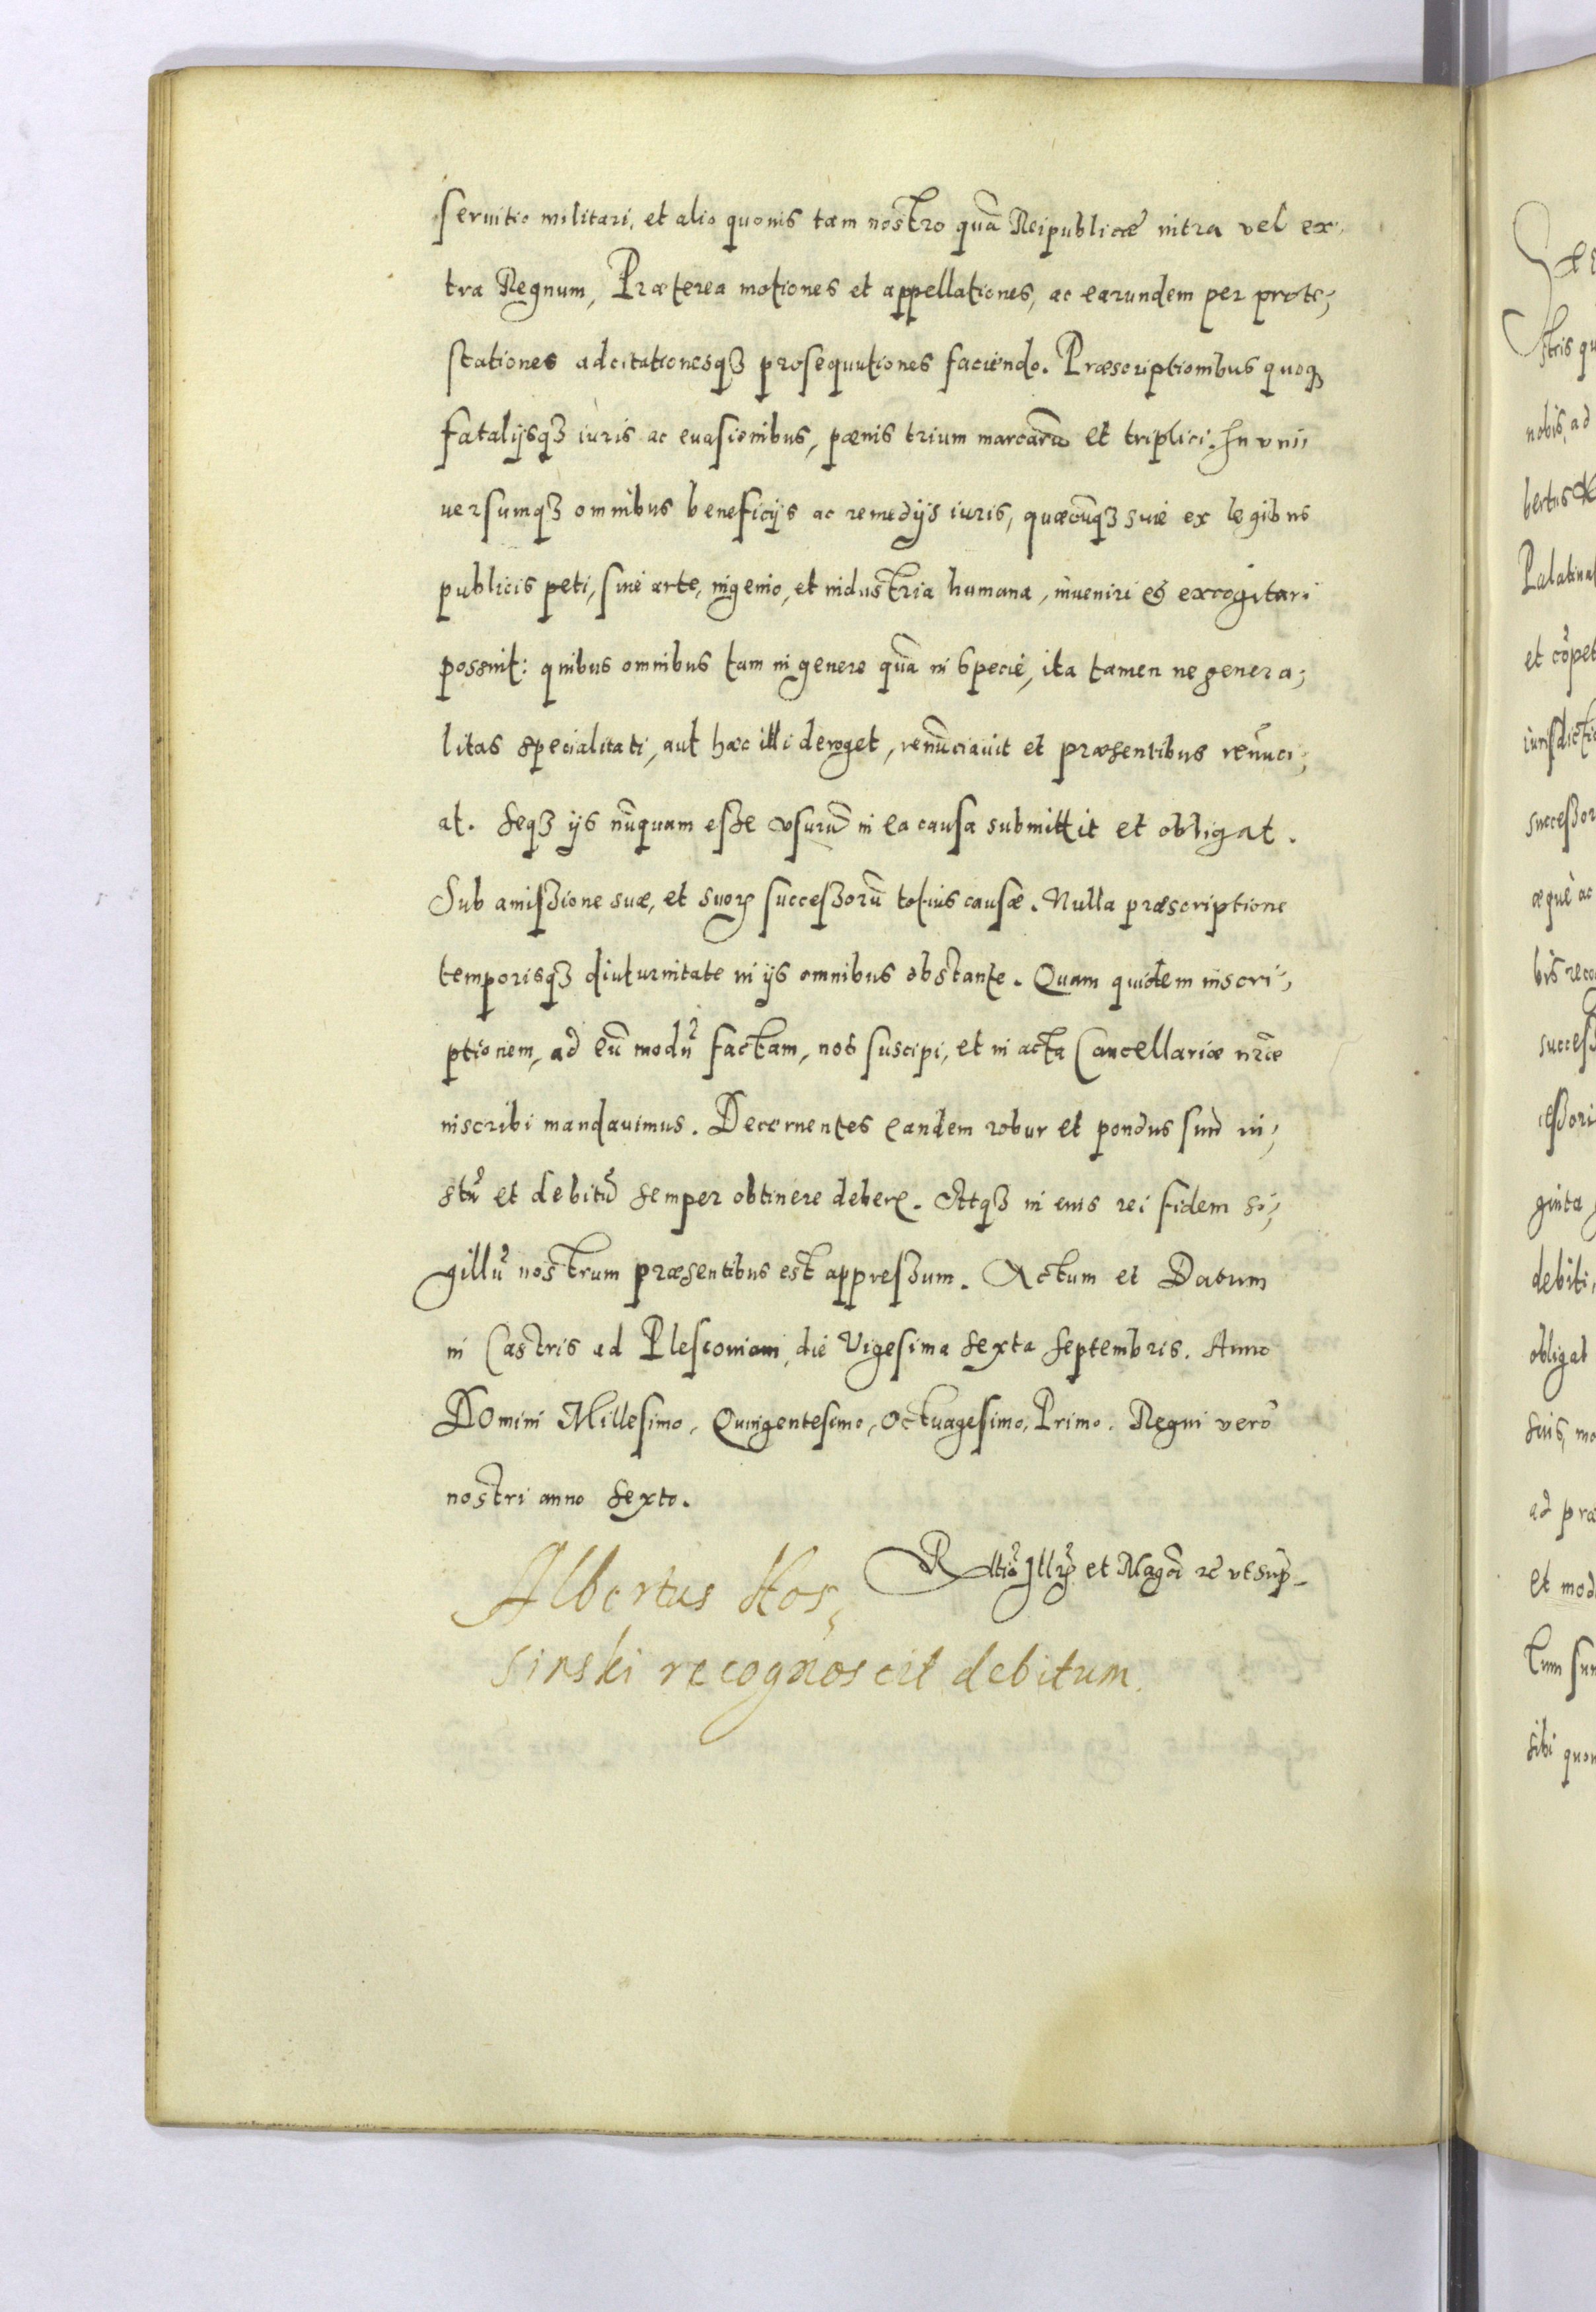 seruitio militari, et alio quouis tam nostro quã Reipublicæ intra vel ex,
tra Regnum, Præterea motiones et appellationes, ac earundem per prote;
stationes adcitationesqȝ prosequutiones faciendo. Præscriptionibus quoqȝ
fatalijsqȝ iuris ac euasionibus, pænis trium marcarũ et triplici. In vni,
uersumqȝ omnibus beneficijs ac remedijs iuris, quæcũqȝ siue ex legibus
publicis peti, siue arte, ingenio, et industria humana, inueniri et excogitari
possint: quibus omnibus tam in genere quã in specie, ita tamen ne genera;
litas specialitati, aut hæc illi deroget, renũciauit et præsentibus renũci;
at. seqȝ ijs nũquam esse vsurũ in ea causa submittit et obligat.
Sub amissione suæ, et suoꝝ successorũ totius causæ. Nulla præscriptione
temporisqȝ diuturnitate in ijs omnibus obstante. Quam quidem inscri;
ptionem, ad eũ modũ factam, nos suscipi, et in acta Cancellariæ nr̃æ
inscribi mandauimus. Decernentes eandem robur et pondus suũ iu;
stũ et debitũ semper obtinere debere. Atqȝ in eius rei fidem si;
gillũ nostrum præsentibus est appressum. Actum et Datum
in Castris ad Plescouiam, die Vigesima sexta Septembris. Anno
Domini Millesimo, Quingentesimo, Octuagesimo, Primo. Regni verò
nostri anno sexto.
Illꝝ et Magcĩ
Albertus Kos,
sinski recognoscit debitum.
nobis, ad
Palatina
et cõpet
iurisdictio
successor
æquè ac
success
ginta
debiti,
obligat
suis, mo
ad præ
et mod
tum sum
sibi quo